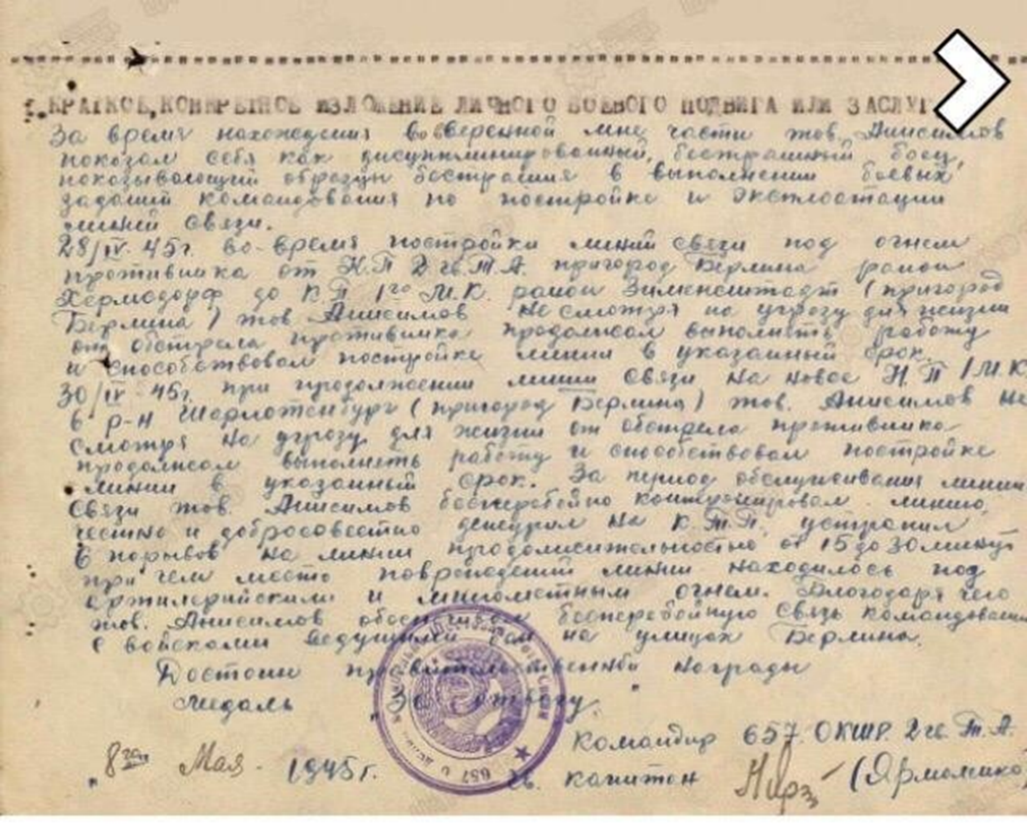 КРАТКОЕ, КОНКРЕТНОЕ ИЗЛОЖЕНИЕ ЛИЧНОГО БОЕВОГО ПОДВИГА ИЛИ ЗАСЛУГ
За время нахождения во вверенной мне части тов. Анисимов
показал себя как дисциплинированный, бесстрашный боец,
показывающий образцы бесстрашия в выполнении боевых
заданий командования по постройке и эксплоатации
линий связи.
28/IV-45г. во-время постройки линий связи под огнем
противника от Н.П 2 гв.Т.А. пригород Берлина район
Хермсдорф до К.П 1го М.К. район Зименсштадт (пригород
Берлина) тов. Анисимов не смотря на угрозу для жизни
от обстрела противника продолжал выполнять работу
и способствовал постройке линии в указанный срок.
30/IV-45г. при продолжении линии связи на новое Н.П 1 М.К
в р-н Шарлотенбург (пригород Берлина) тов. Анисимов не
смотря на угрозу для жизни от обстрела противника
продолжал выполнять работу и способствовал постройке
линии в указанный срок. За период обслуживания линии
связи тов. Анисимов бесперебойно контролировал линию,
честно и добросовестно дежурил на К.Т.П. устранил
6 порывов на линии продолжительностью от 15 до 30 минут
при чем место повреждений линии находилось под
артилерийским и минометным огнем. Благодаря чего
тов. Анисимов обеспечивал бесперебойную связь командования
с войсками ведущими бои на улицах Берлина.
Достоин правительственной награды
медаль "За отвагу".
Командир 657 ОКШР 2 гв. Т.А.
"8го Мая 1945г.
гв. капитан (Ярмоленко
657